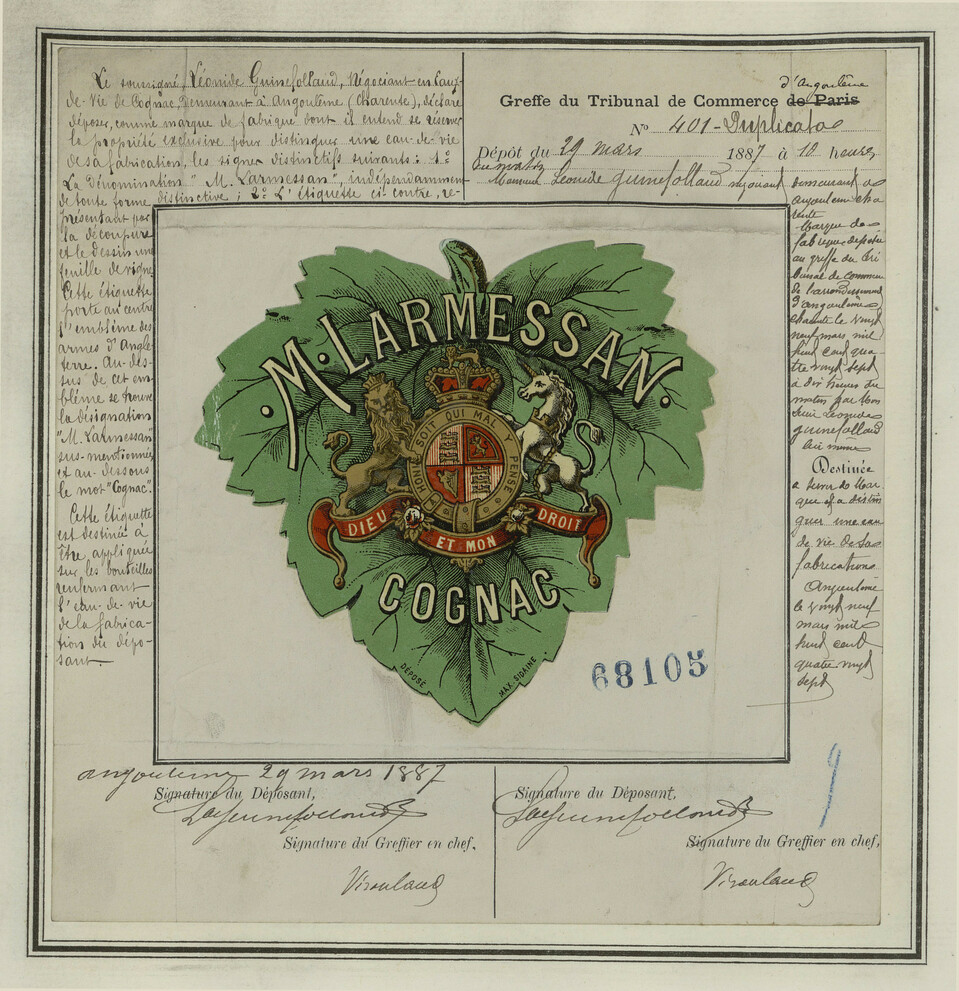 Le soussigné, Léonide Guinefollaud, Négociant en Eaux-
de-Vie de Cognac, demeurant à Angoulême (Charente), déclare
déposer, comme marque de fabrique dont il entend se réserver
la propriété exclusive pour distinguer une eau-de-vie
de sa fabrication, les signes distinctifs suivants: 1º
La Dénomination "M. Larmessan", indépendamment
de toute forme distinctive; 2º L'étiquette ci-contre, re-
présentant par
la découpure
et le dessin une
feuille de vigne
Cette étiquette
porte au centre
l'emblème des
armes d'Angle-
terre. Au-des-
sus de cet em-
blème se trouve
la désignation
"M. Larmessan"
sus-mentionnée
et au-dessous
le mot "Cognac".
Cette étiquette
est destinée à
être appliquée
sur les bouteilles
renfermant
l'eau-de-vie
de la fabrica-
tion du dépo-
sant
d'Angoulême
Greffe du Tribunal de Commerce de Paris
Nº 401 - Duplicata
Dépôt du 29 mars 1887 à 10 heures
du matin
Monsieur Leonide guinefollaud negociant demeurant a
angouleme cha
rente
Marque de
fabrique deposée
au greffe du tri
bunal de commerce
de l'arrondissement
d'angoulême
charente le vingt
neuf mars mil
huit cent qua
tre vingt sept
à dix heures du
matin par Mon
sieur Leonide
guinefollaud
lui même
Destinée
a servir de Mar
que et a distin
guer une eau
de vie de sa
fabrication
Angoulême
le vingt neuf
mars mil
huit cent
quatre vingt
sept
M. LARMESSAN.
HONI SOIT QUI MAL Y PENSE
DIEU ET MON DROIT
COGNAC
DÉPOSÉ
MAX. SIDAINE
68105
angouleme 29 mars 1887
Signature du Déposant,
Signature du Greffier en chef,
Signature du Déposant,
Signature du Greffier en chef,